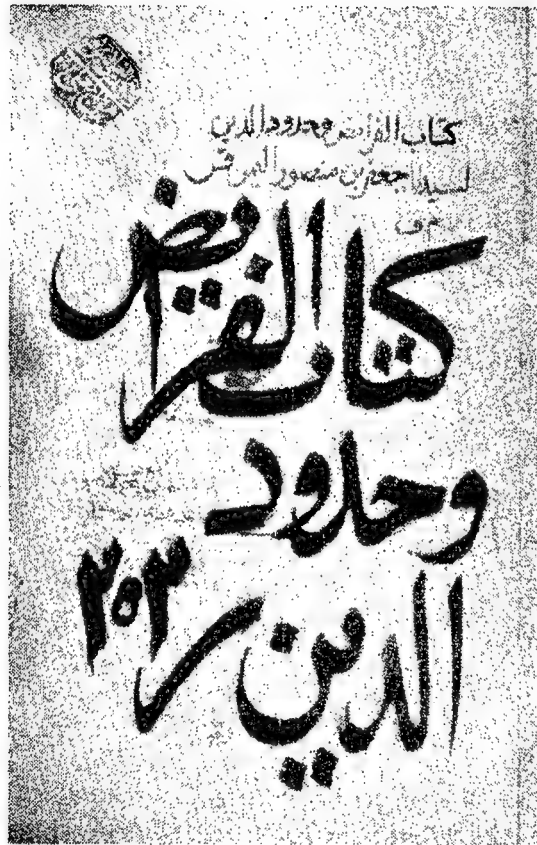 كتاب الفرائض وحدود الدين
لسيدنا جعفر بن منصور اليمن قس
كتاب الفرايض
وحدود
الدين
٣٥٣